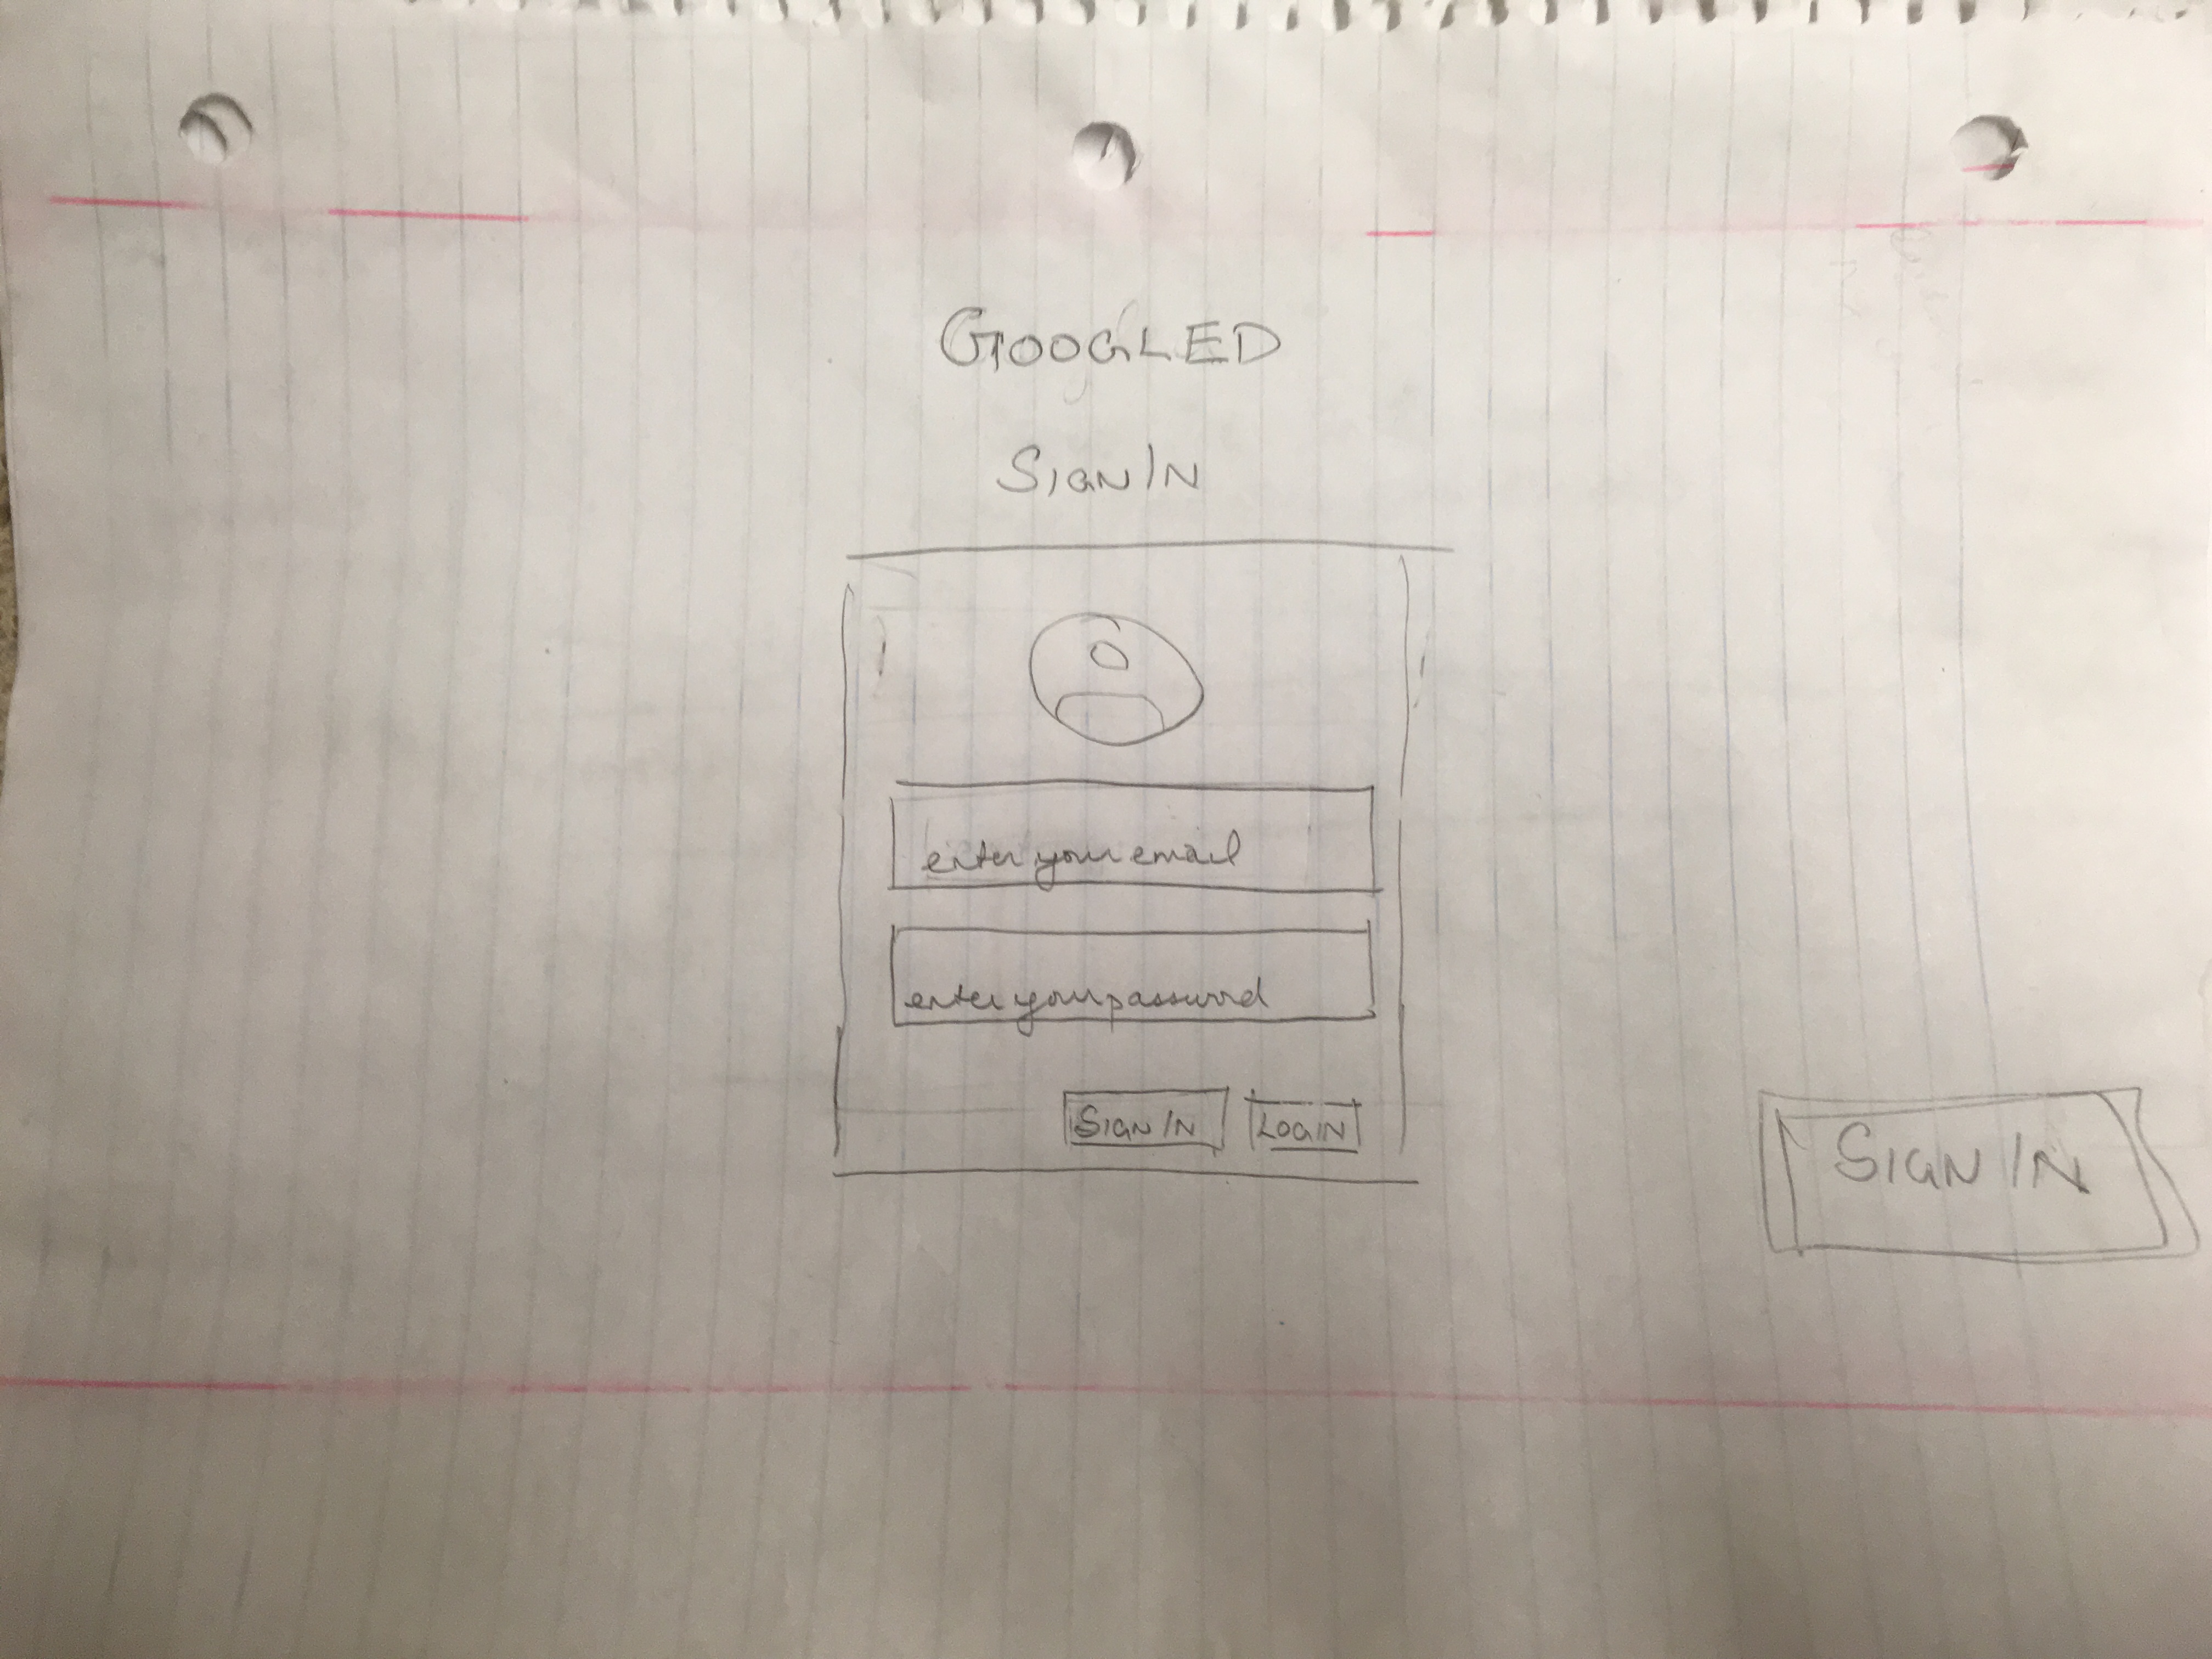 GOOGLED
SIGN IN
enter your email
enter your password
SIGN IN LOGIN
SIGN IN